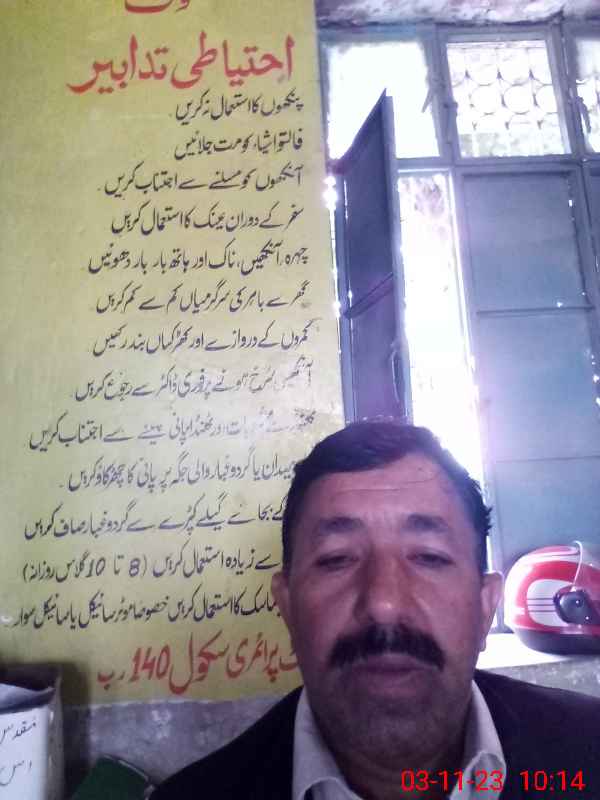 احتیاطی تدابیر
پنکھوں کا استعمال نہ کریں۔
فالتو اشیاء کو مت جلائیں
آنکھوں کو مسلنے سے اجتناب کریں۔
سفر کے دوران عینک کا استعمال کریں
چہرہ، آنکھیں، ناک اور ہاتھ بار بار دھوئیں
گھر سے باہر کی سرگرمیاں کم سے کم کریں
کمروں کے دروازے اور کھڑکیاں بند رکھیں
آنکھیں سرخ ہونے پر فوری ڈاکٹر سے رجوع کریں۔
اور ٹھنڈا پانی پینے سے اجتناب کریں
میدان یا گرد و غبار والی جگہ پر پانی کا چھڑکاؤ کریں۔
کے بجائے گیلے کپڑے سے گرد و غبار صاف کریں
سے زیادہ استعمال کریں (8 تا 10 گلاس روزانہ)
ماسک کا استعمال کریں خصوصا موٹر سائیکل یا سائیکل سوار
پرائمری سکول 140 ر ب
مقدس
03-11-23 10:14